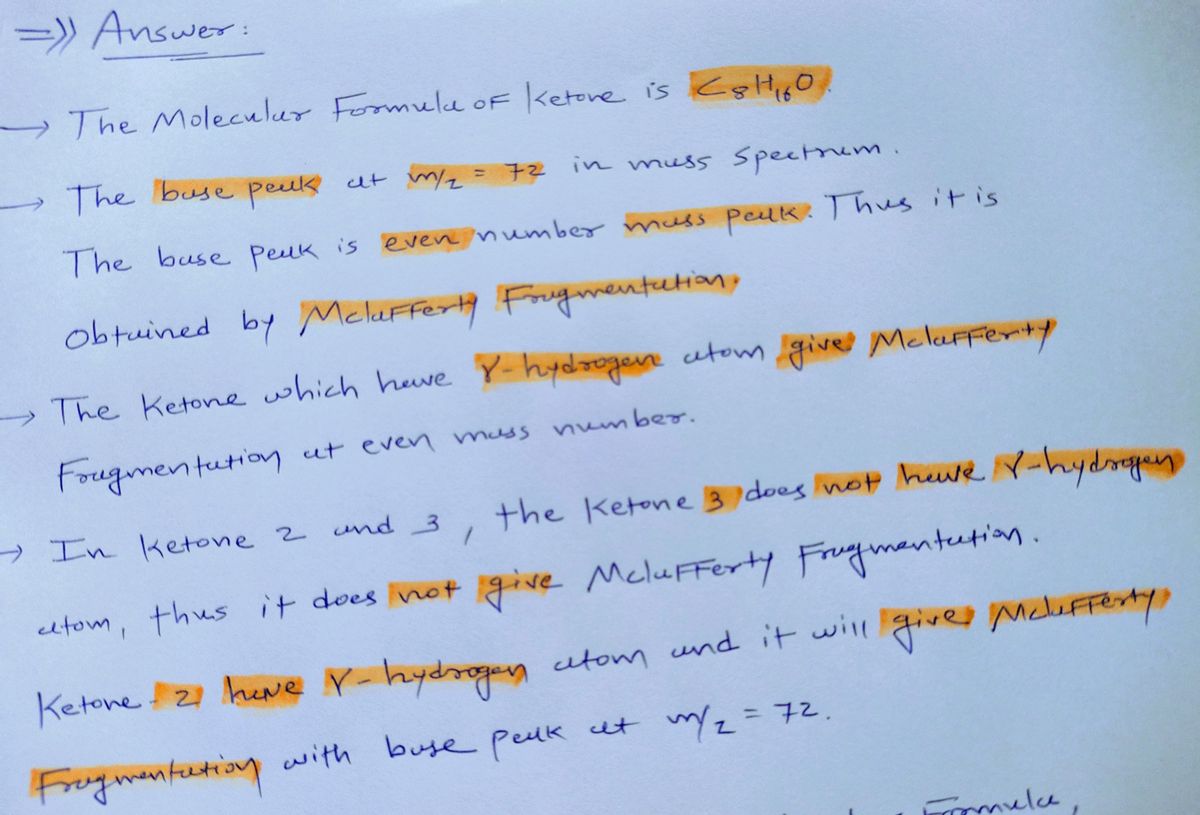 =>> Answer:
→ The Molecular Formula of Ketone is C8H16O.
→ The base peak at m/z = 72 in mass spectrum.
The base peak is even number mass peak. Thus it is
obtained by Mclafferty Fragmentation.
→ The Ketone which have γ-hydrogen atom give Mclafferty
Fragmentation at even mass number.
→ In Ketone 2 and 3, the Ketone 3 does not have γ-hydrogen
atom, thus it does not give Mclafferty Fragmentation.
Ketone-2 have γ-hydrogen atom and it will give Mclafferty
Fragmentation with base peak at m/z = 72.
Formula,